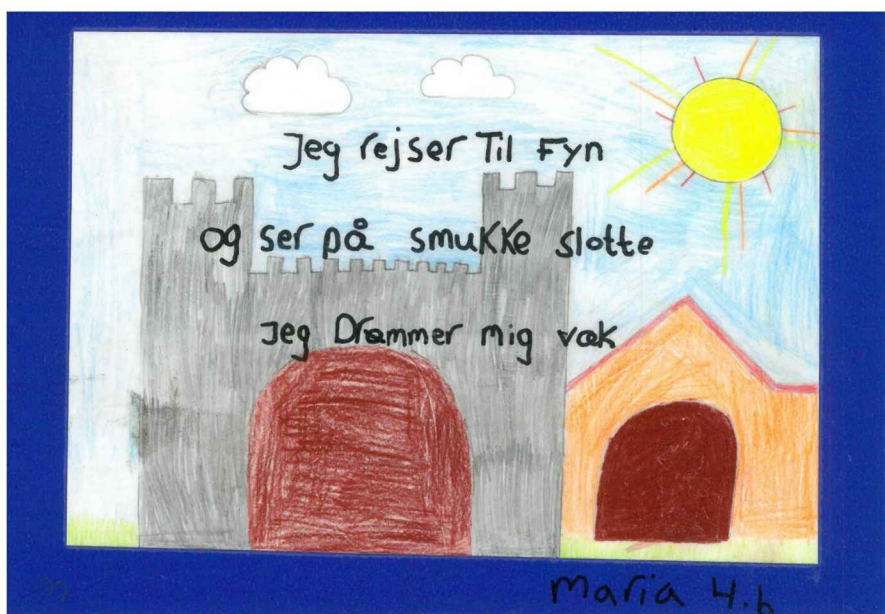 Jeg rejser Til Fyn
og ser på smukke slotte
Jeg Drømmer mig væk
Maria 4.b